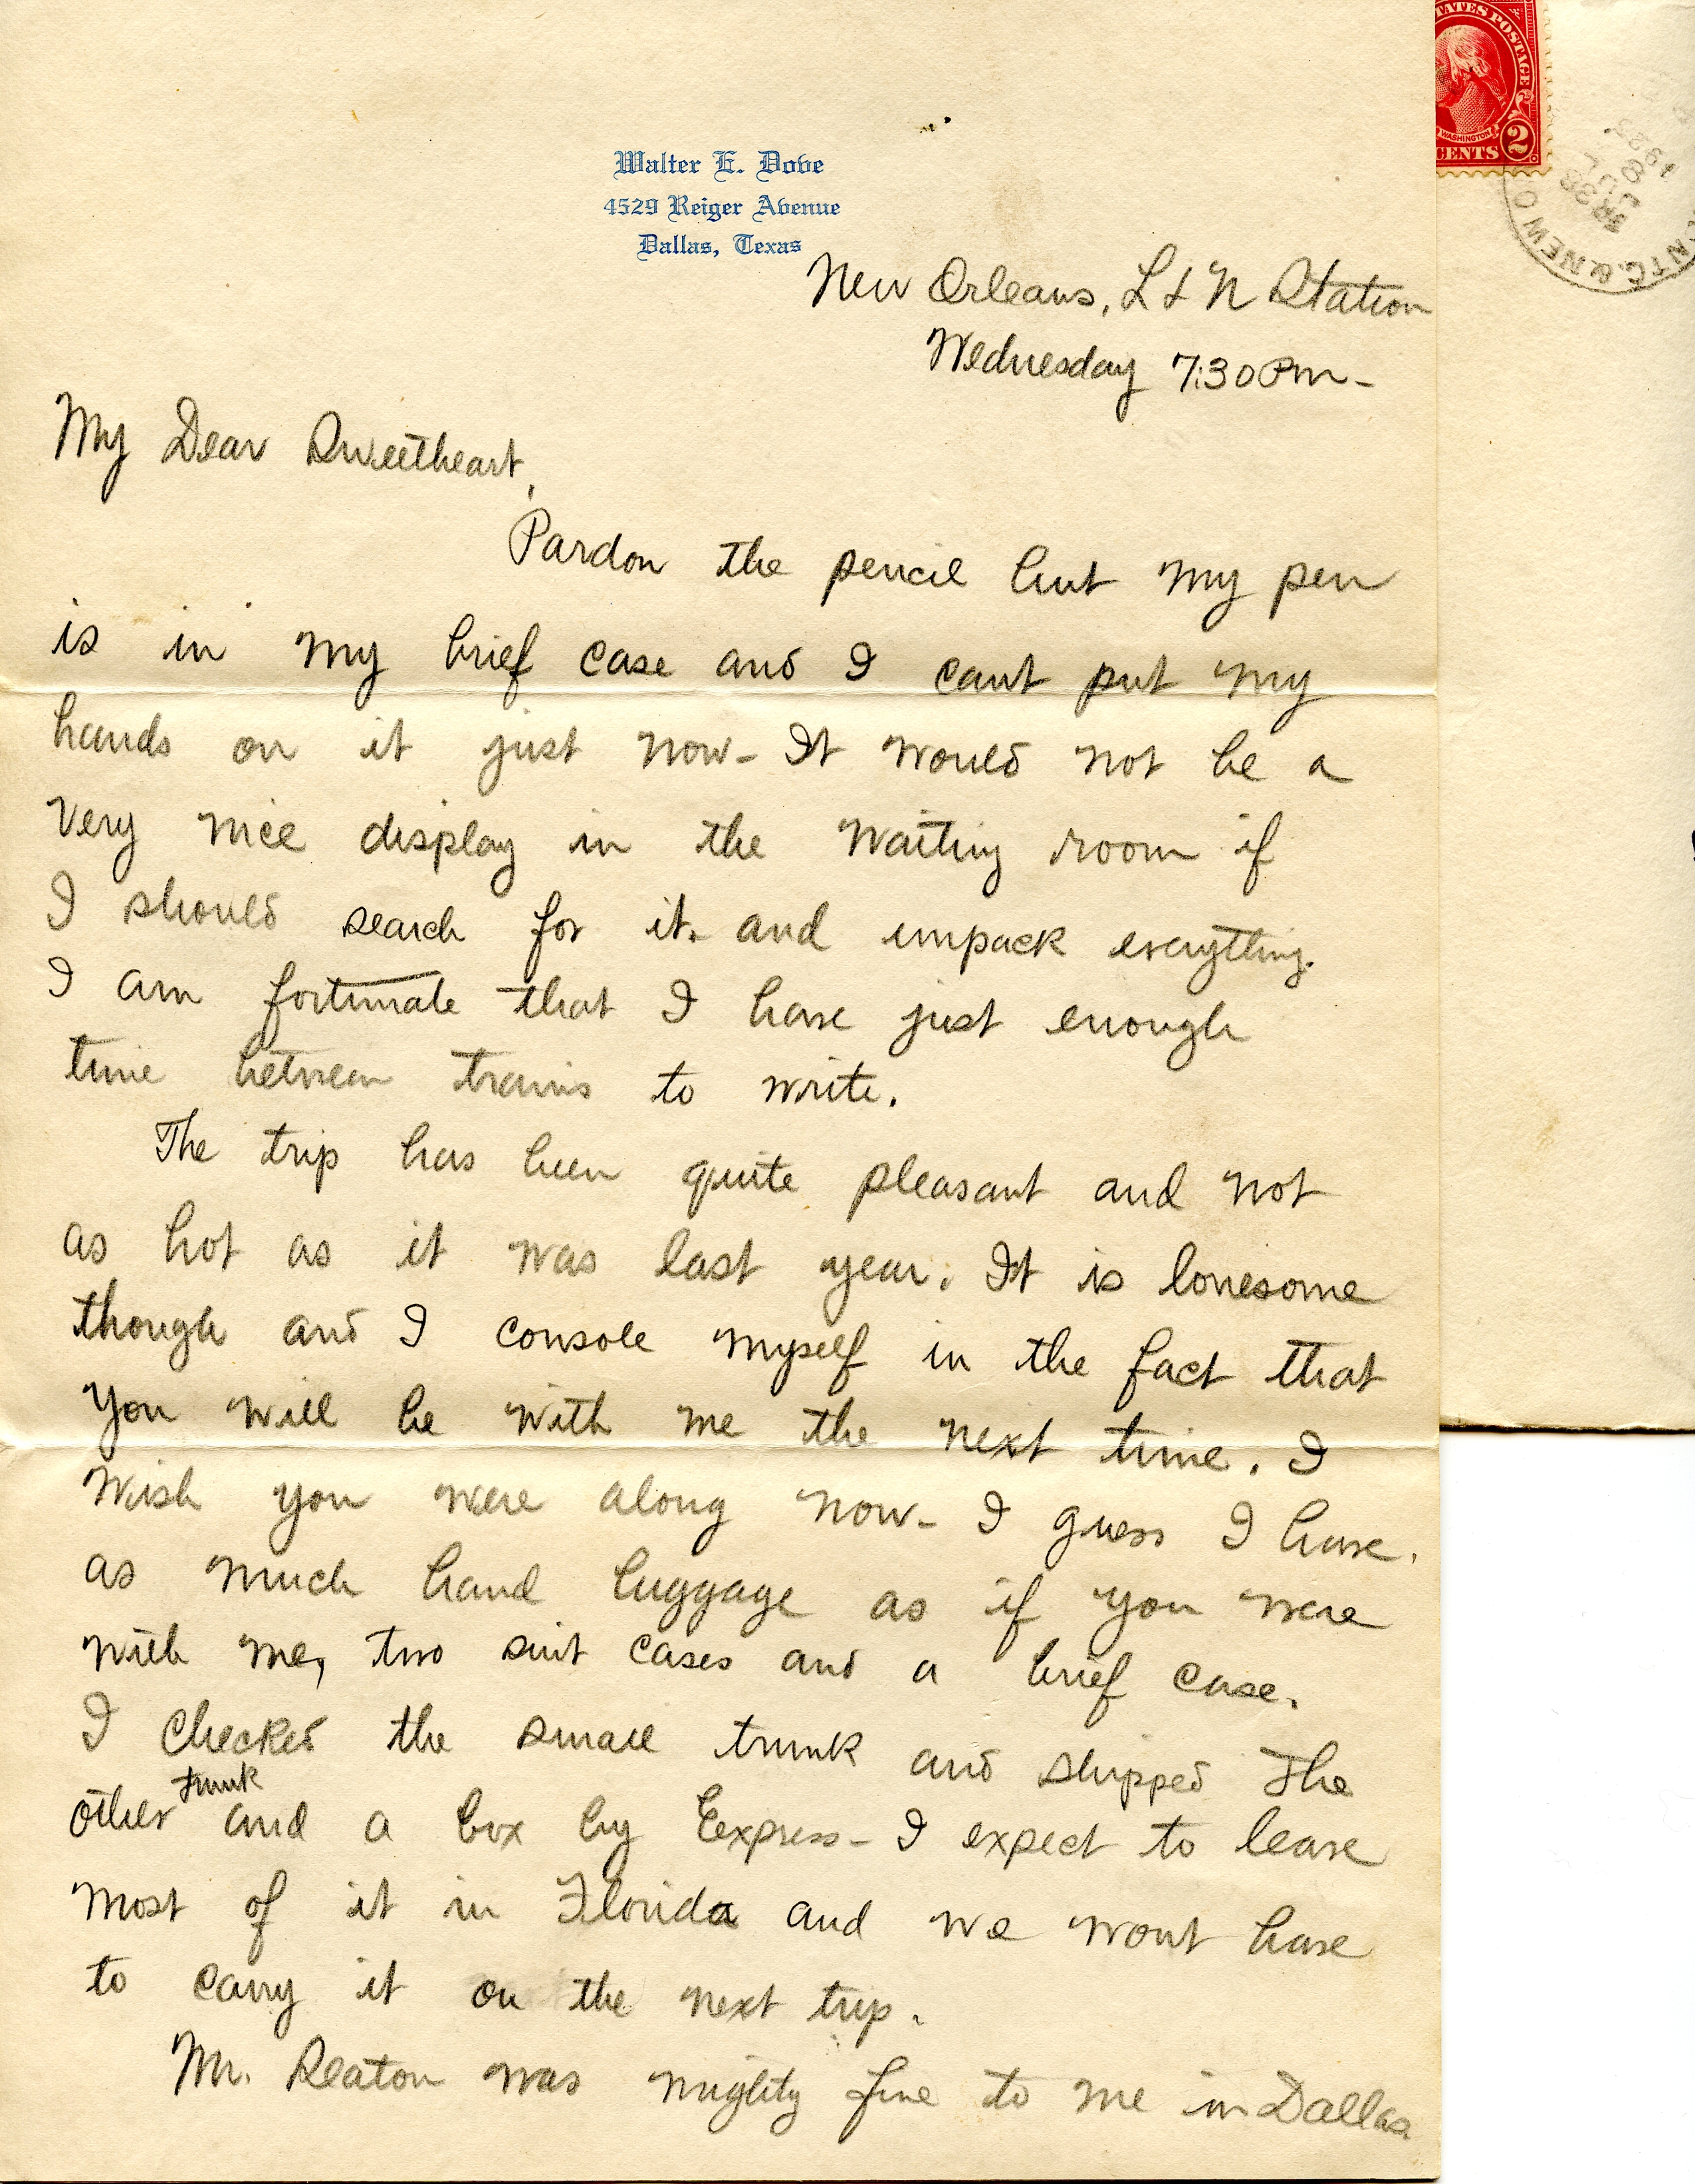 Walter E. Dove
4529 Reiger Avenue
Dallas, Texas
New Orleans, L & N Station
Wednesday 7:30 Pm-
My Dear Sweetheart,
Pardon the pencil but my pen
is in my brief case and I cant put my
hands on it just now- It would not be a
very nice display in the waiting room if
I should search for it. and unpack everything.
I am fortunate that I have just enough
time between trains to write.
The trip has been quite pleasant and not
as hot as it was last year. It is lonesome
though and I console myself in the fact that
you will be with me the next time. I
wish you were along now- I guess I have.
as much hand luggage as if you were
with me, two suit cases and a brief case.
I checked the small trunk and shipped the
trunk
other and a box by Express- I expect to leave
most of it in Florida and we wont have
to carry it on the next trip.
Mr. Seaton was mighty fine to me in Dallas.
TATES POSTAGE
WASHINGTON
CENTS 2
& NEW O